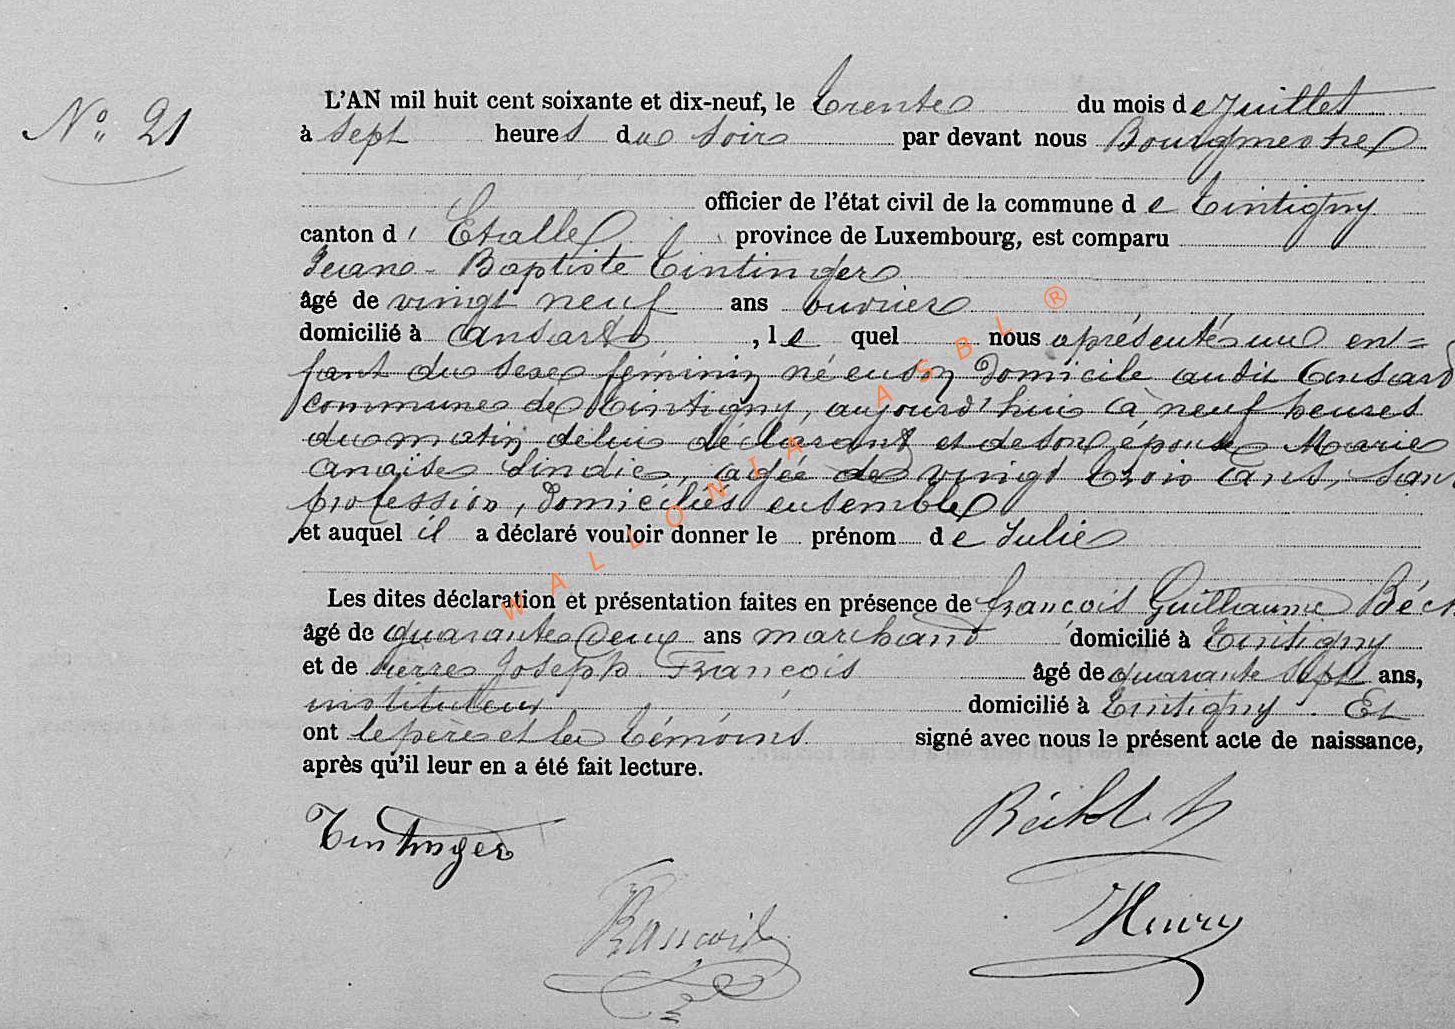 N° 21
L'AN mil huit cent soixante et dix-neuf, le trente du mois de Juillet
à sept heures du soir par devant nous Bourgmestre
officier de l'état civil de la commune de Tintigny
canton d' Etalle, province de Luxembourg, est comparu
Jean-Baptiste Tintinger
âgé de vingt neuf ans ouvrier
domicilié à Ansart, le quel nous a présenté un en=
fant du sexe féminin né en son domicile audit Ansart
commune de Tintigny, aujourd'hui à neuf heures
du matin de lui déclarant et de son épouse Marie
Anaïse Lindic, agée de vingt trois ans, sans
profession, domiciliés ensemble
et auquel il a déclaré vouloir donner le prénom de Julie
Les dites déclaration et présentation faites en présence de François Guillaume
âgé de quarante deux ans marchand domicilié à Tintigny
et de Pierre Joseph François âgé de quarante sept ans,
instituteur domicilié à Tintigny. Et
ont le père et les témoins signé avec nous le présent acte de naissance,
après qu'il leur en a été fait lecture.
Tintinger
François
Henry
WALLONIA ASBL ®